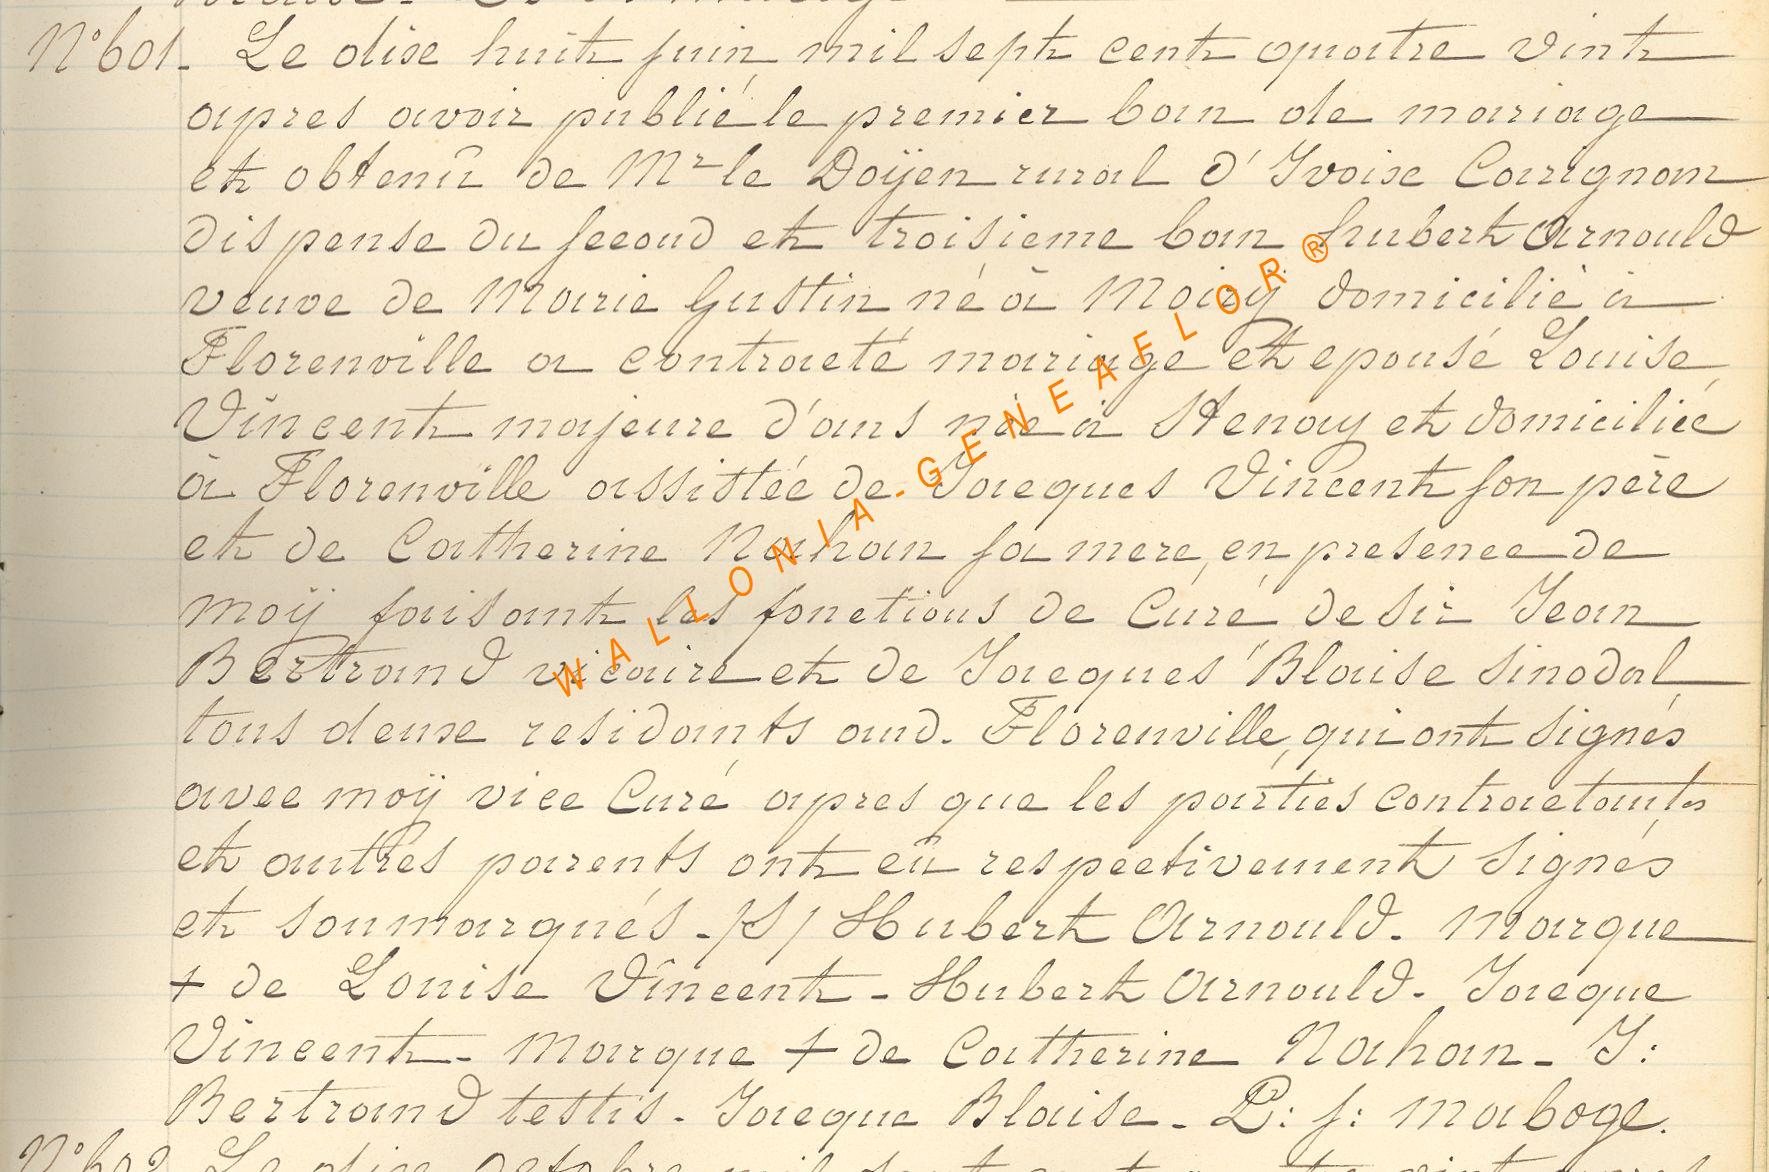 N°601. Le dixe huit juin mil sept cent quatre vint
apres avoir publié le premier ban de mariage
et obtenû de Mr le Doÿen rural d'Ivoixe Carignan
dispense du second et troisieme ban hubert Arnould
veuve de Marie Gustin né à Moiry domicilié à
Florenville a contracté mariage et epousé Louise
Vincent majeure d'ans née à Stenay et domiciliée
à Florenville assistée de Jacques Vincent son père
et de Catherine Nahan sa mere, en presence de
moÿ faisant les fonctions de Curé de sir Jean
Bertrand vicaire et de Jacques Blaise sinodal
tous deuxe residants aud. Florenville, qui ont signés
avec moÿ vice Curé apres que les parties contractants
et autres parents ont eû respectivement signés
et soumarqués - /S/ Hubert Arnould. Marque
+ de Louise Vincent - Hubert Arnould. Jacque
Vincent - Marque + de Catherine Nahan - J:
Bertrand testis - Jacque Blaise - P: f: Maboge.
N°602 Le dixe Octobre mil
WALLONIA-GENEAFLOR®